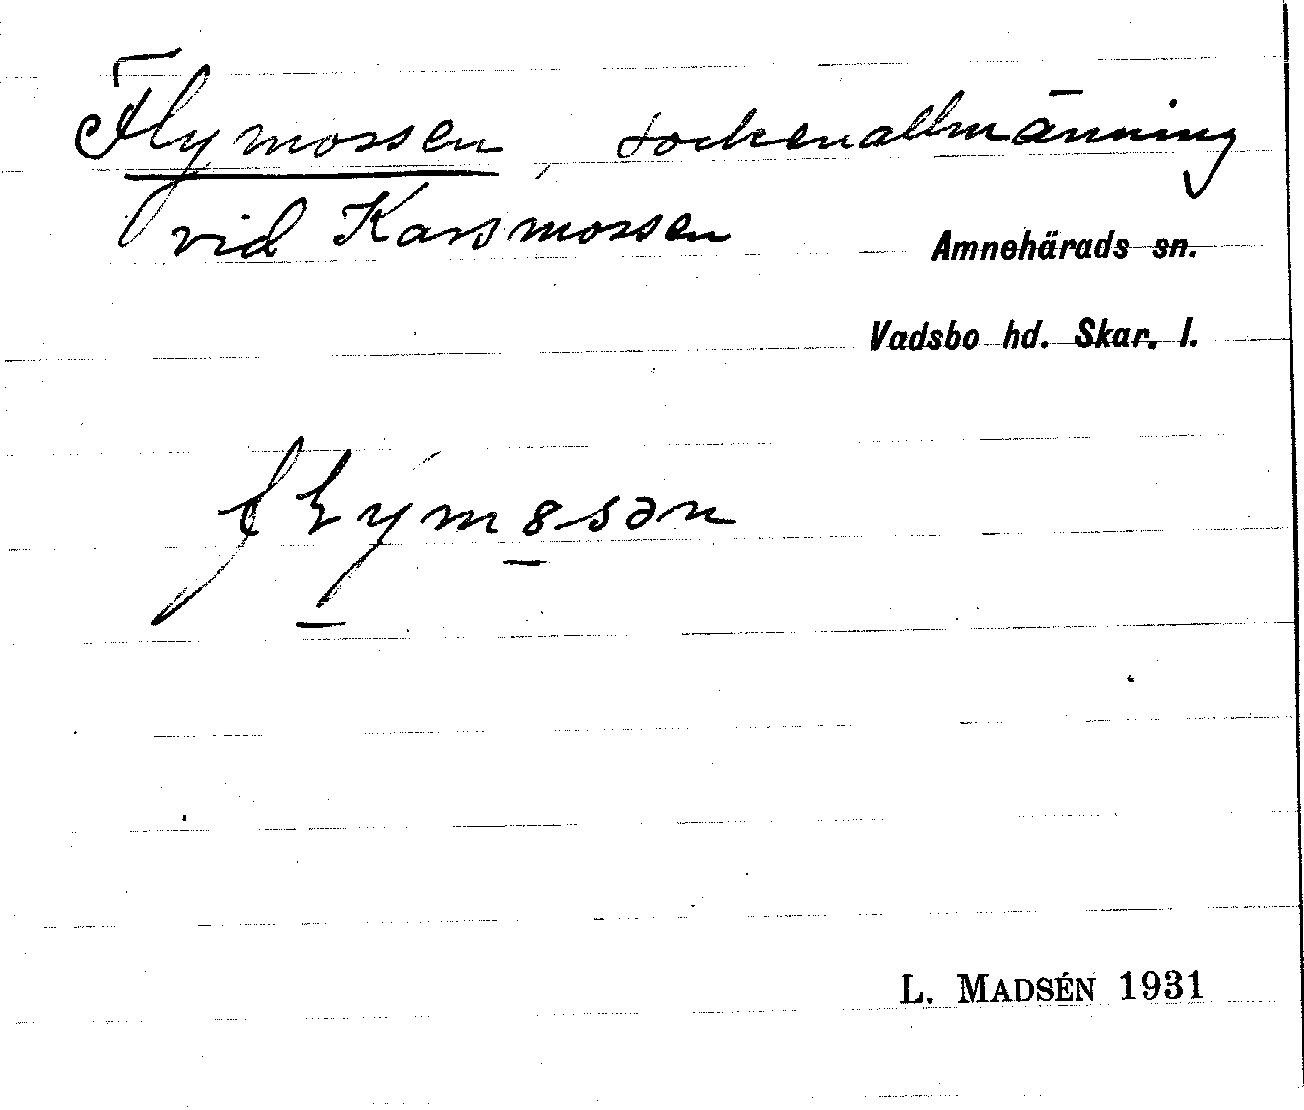 Flymossen, sockenallmänning
vid Karsmossen
Amnehärads sn.
Vadsbo hd. Skar. l.
L. MADSÉN 1931